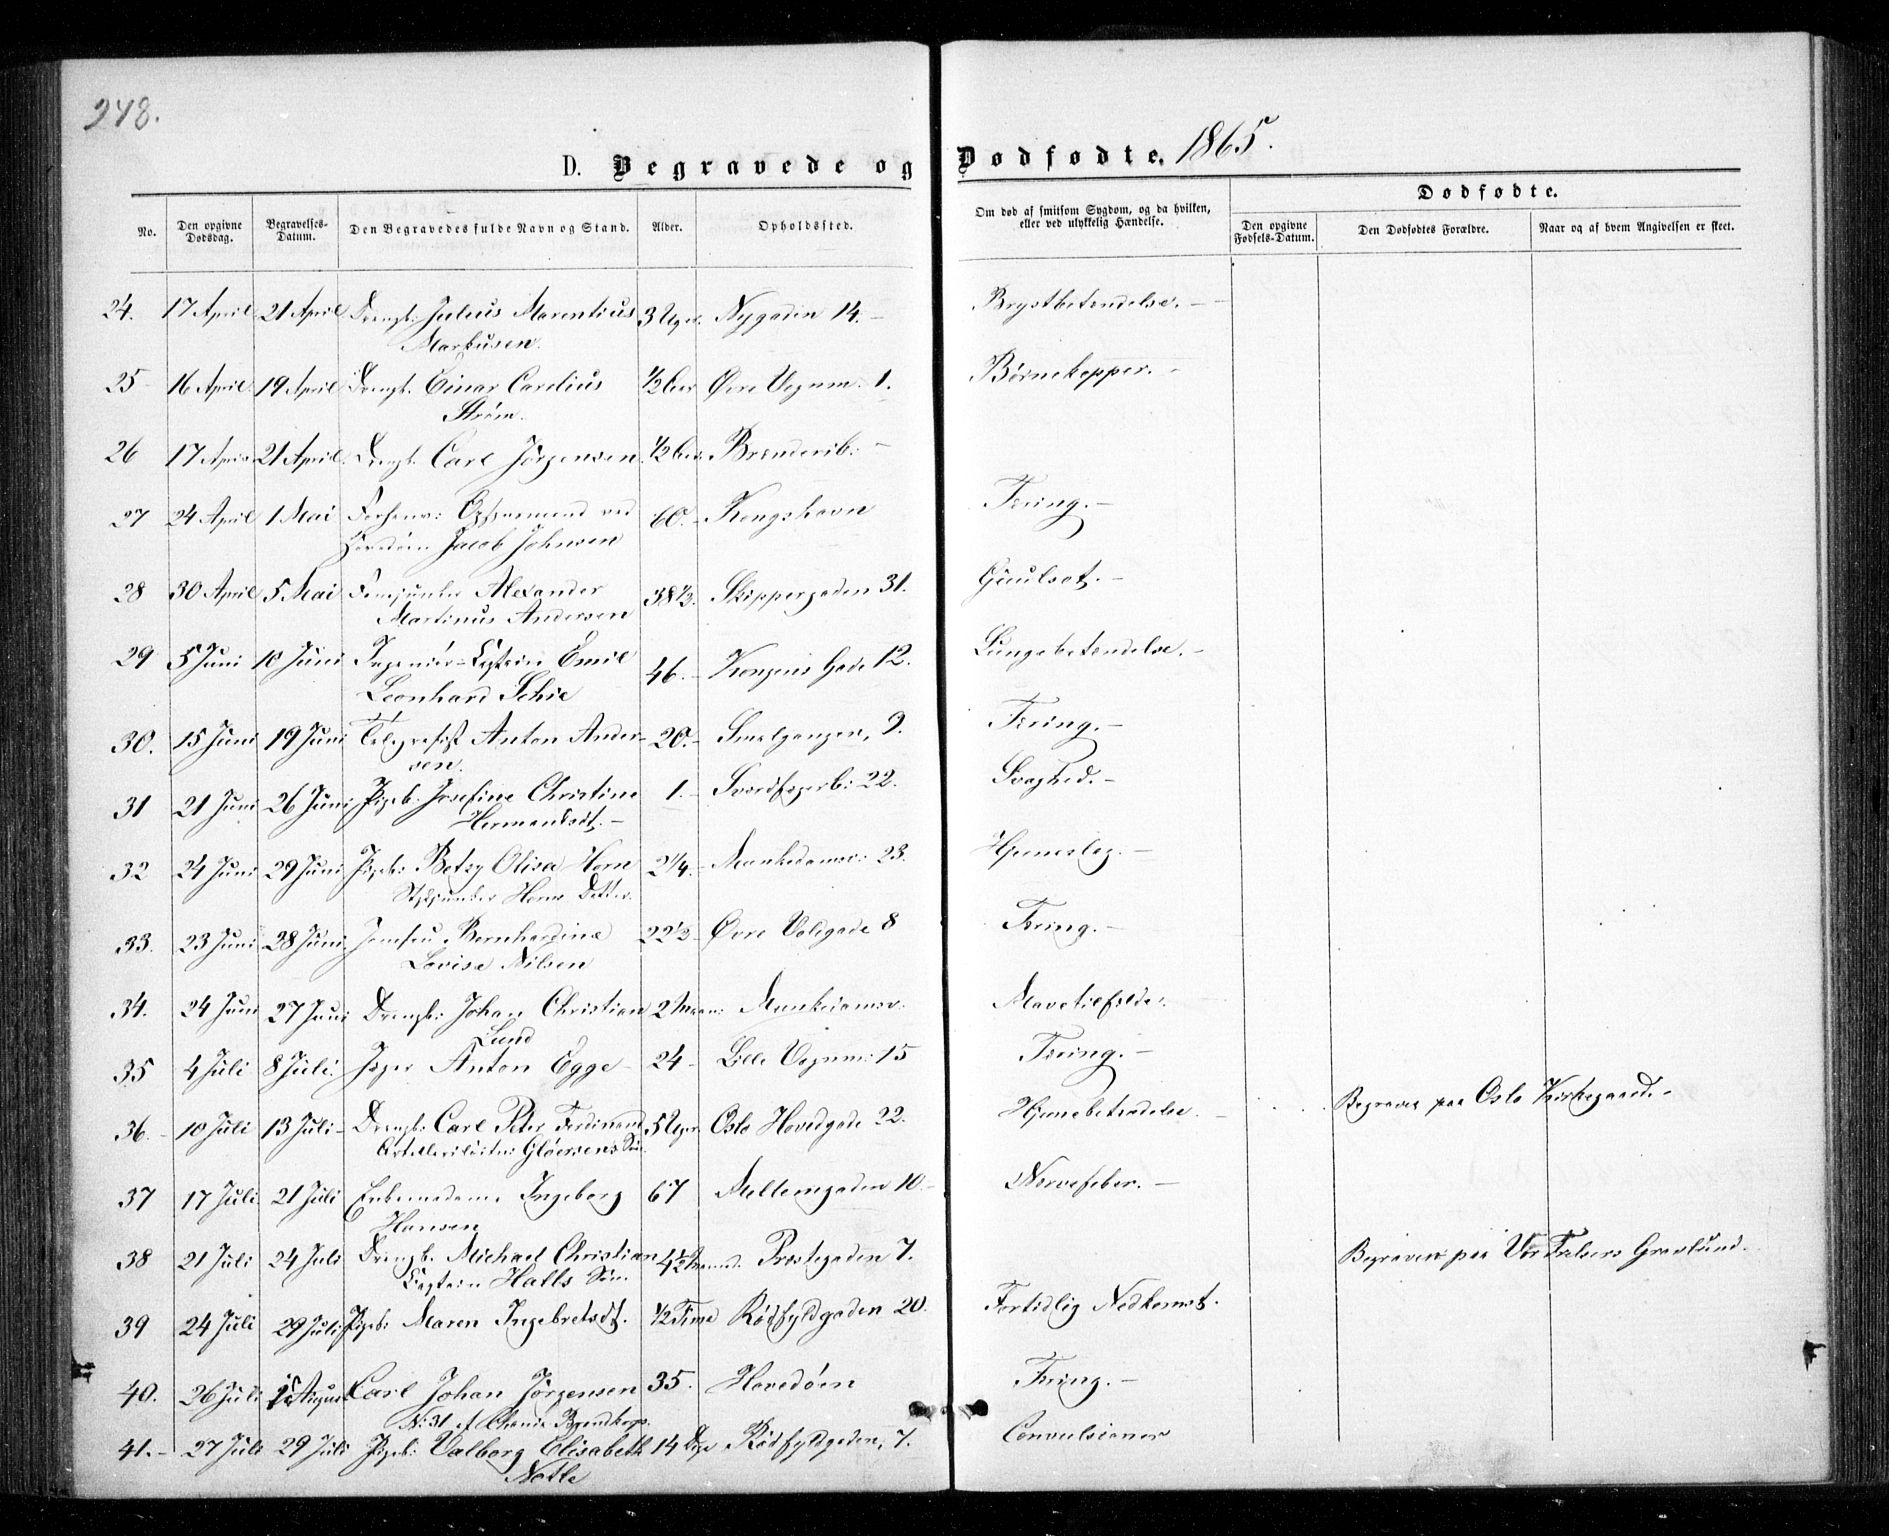 248.
D. Begravede og Dødfødte. 1865.
No. Den opgivne Dødsdag. Begravelses-Datum. Den Begravedes fulde Navn og Stand. Alder. Opholdssted. Om død af smitsom Sygdom, og da hvilken, eller ved ulykkelig Hændelse. Dødfødte.
Den opgivne Fødsels-Datum. Den Dødfødtes Forældre. Naar og af hvem Angivelsen er skeet.
24. 17 April 21 April Drengb. Julius Marentius 3 Uger. Nygaden 14. – Brystbetændelse. –
Markusen.
25 16 April 19 April Drengb. Einar Carelius ½ Øvre Vognm. 1. Børnekopper. –
Strøm.
26 17 April 21 April Drengb. Carl Jørgensen ½ Brænderib: –
27 24 April 1 Mai Forhenv: Opsynsmand ved 60. – Kongshavn Tæring. –
Hovedøen Jacob Johnsen
28 30 April 5 Mai Alexander 38½. Skippergaden 31. Guulsot. –
Martinus Andersen
29 5 Juni 10 Juni Ingeniør-Captein Emil 46. – Kongens Gade 12. Lungebetændelse. –
Leonhard Schie
30. 15 Juni 19 Juni Telegrafist Anton Ander- 20. – Smalgangen, 9. Tæring. –
sen.
31 21 Juni 26 Juni Pigeb. Josefine Christine 1. – Sværdfegerb: 22. Svaghed. –
Hermandsdt. –
32 24 Juni 29 Juni Pigeb: Betzy Olisa Horn 2¼. – Munkedamsv: 23. Hjernesteg. –
Horns Datter.
33. 23 Juni 28 Juni Jomfru Bernhardine 22½ – Øvre Voldgade 8 Tæring. –
Lovise Nilsen
34. 24 Juni 27 Juni Drengb: Johan Christian 2 Maan: Munkedamsv: Mavetilfælde.
Lund
35 4 Juli 8 Juli. Jæger Anton Egge – 24 – Lille Vognm: 15 Tæring. –
36. – 10 Juli 13 Juli – Drengb: Carl Peter Ferdinand 5 Uger. Oslo Hovedgade 22. Hjernebetændelse. – Begraves paa Oslo Kirkegaard. –
Gløersens Søn.
37 17 Juli. 21 Juli Enkemadame Ingeborg 67 Mellemgaden 10. – Nervefeber. –
Hansen
38 21 Juli 24 Juli Drengb. Michael Christian 4½ Maaned. Præstegaden 7. Begraves paa Vor Frelsers Gravlund.
Captein Halls Søn.
39 24 Juli 29 Juli Pigeb: Maren Ingebretsdt. ½ Time Rødfyldgaden 20. Fortidlig Nedkomst.
40. 26 Juli 1 August Carl Johan Jørgensen 35. Hovedøen Tæring. –
No: 31 af
41. – 27 Juli 29 Juli Pigeb: Valborg Elisabeth 14 Dage Rødfyldgaden, 7. Convulsioner
Nøtle